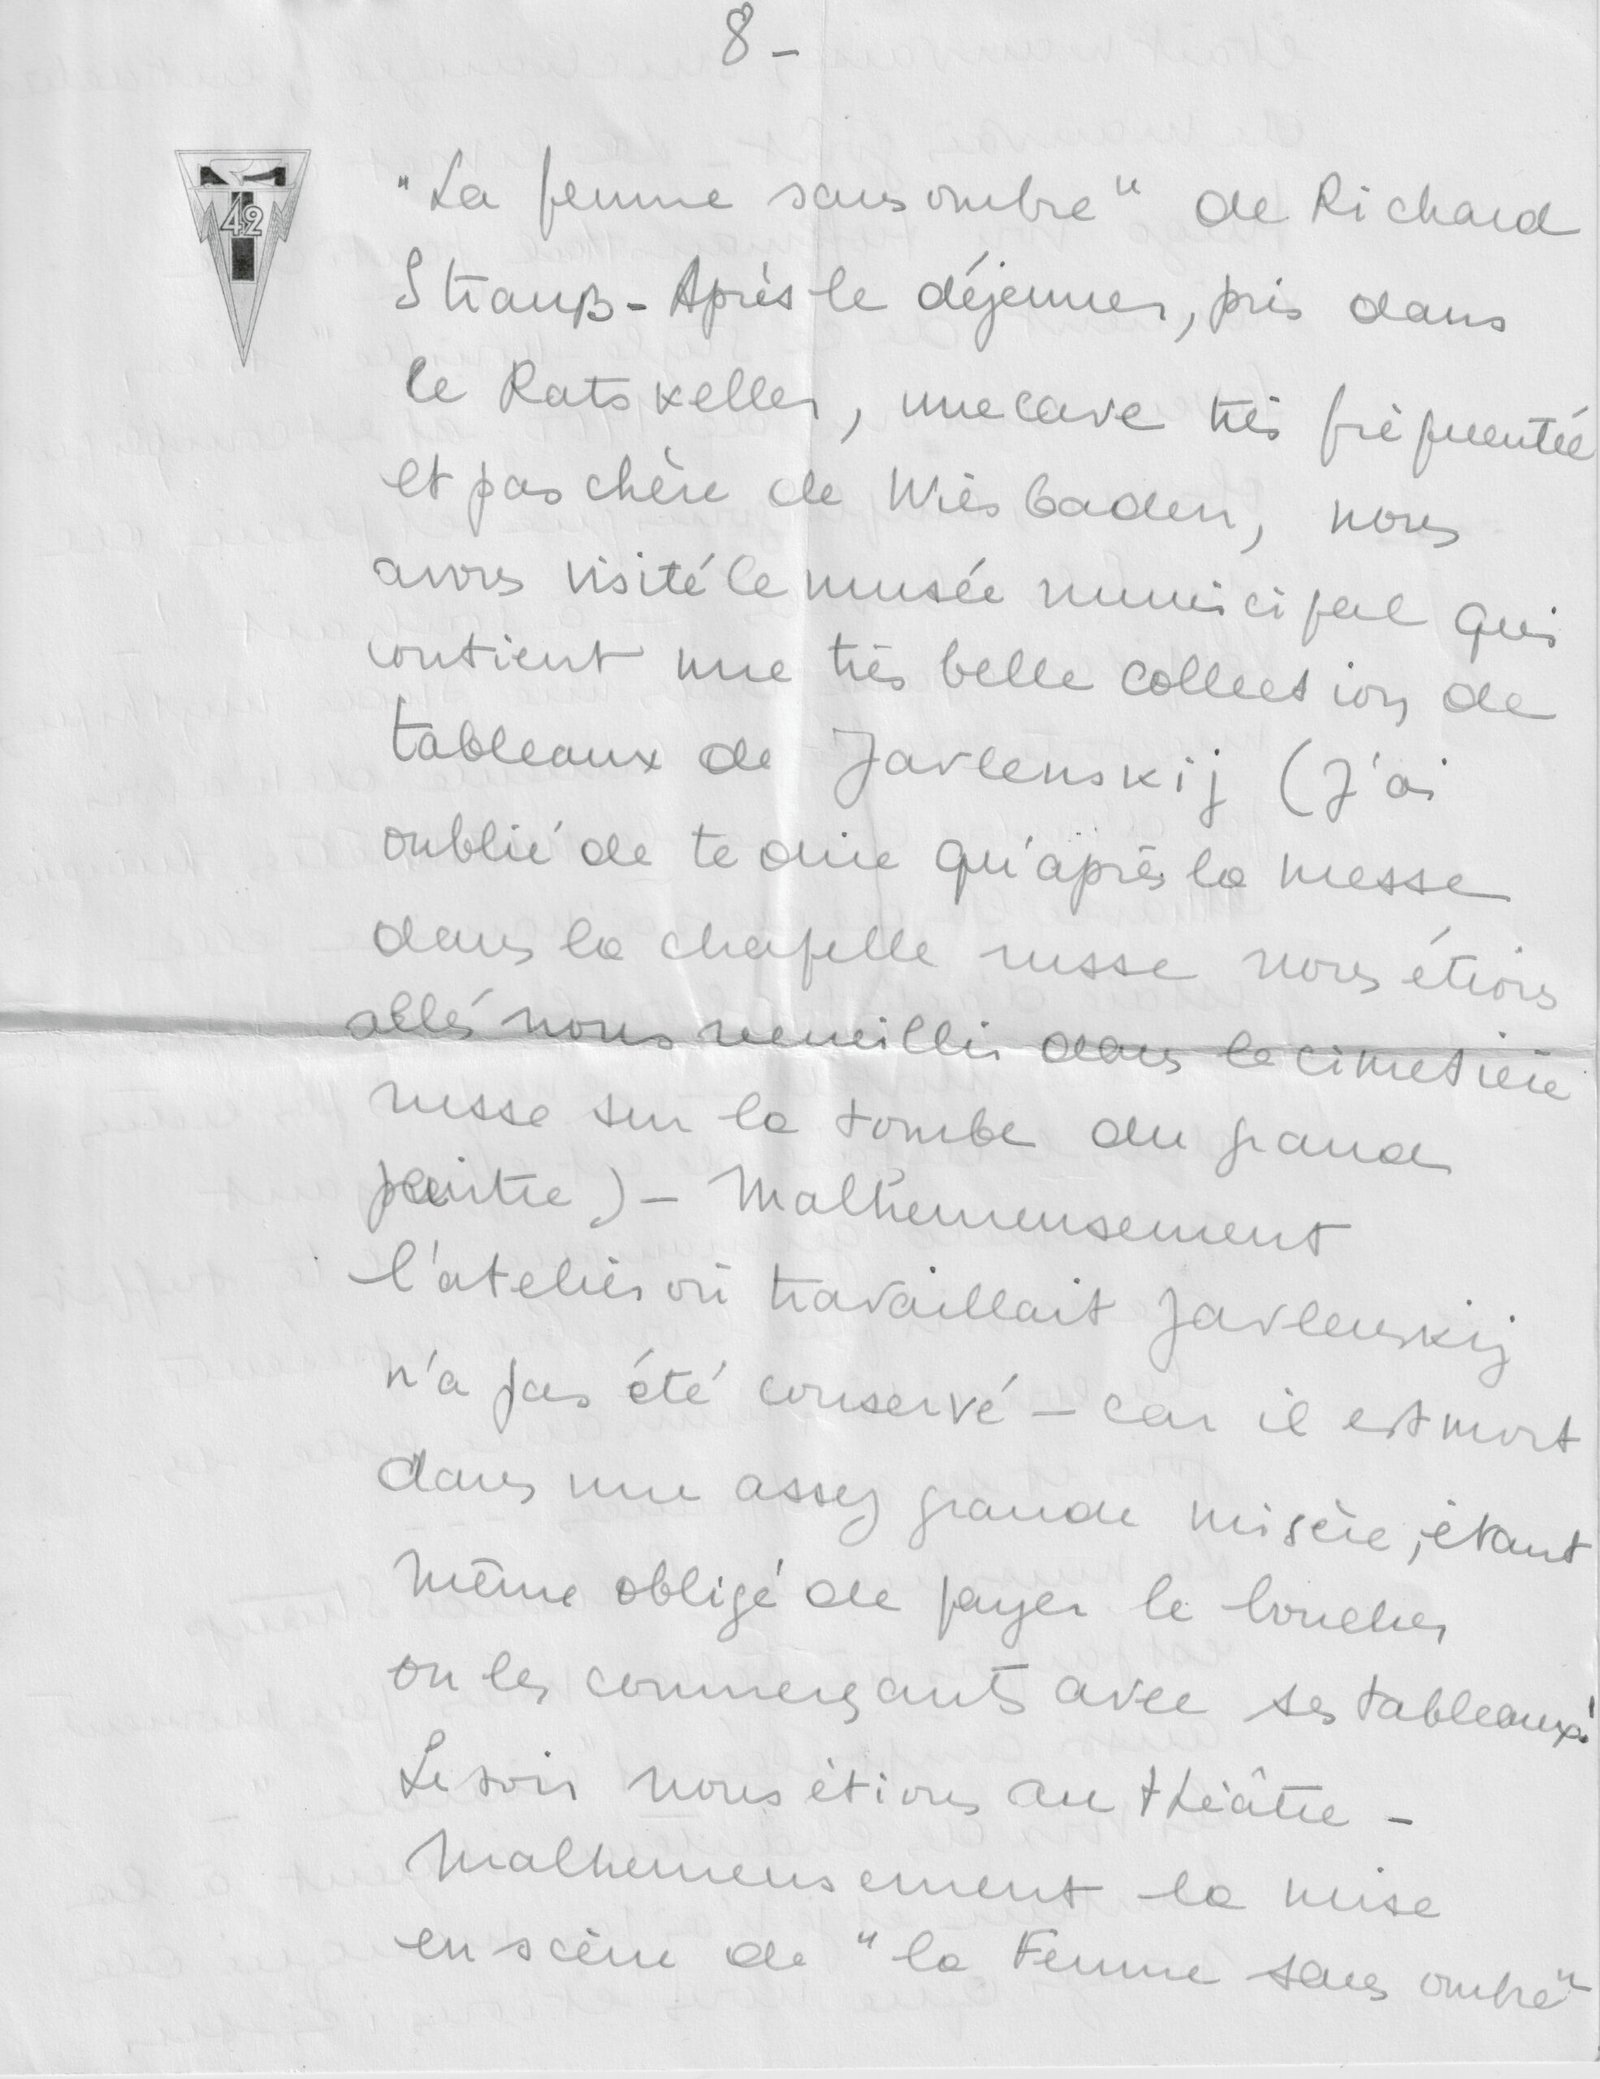 8 -
42
"La femme sans ombre" de Richard
Strauß - Après le déjeuner, pris dans
le Ratskeller, une cave très fréquentée
et pas chère de Wiesbaden, nous
avons visité le musée municipal qui
contient une très belle collection de
tableaux de Javlenskij (J'ai
oublié de te dire qu'après la messe
dans la chapelle russe nous étions
allés nous recueillir dans le cimetière
russe sur la tombe du grand
peintre) - Malheureusement
l'atelier où travaillait Javlenskij
n'a pas été conservé - car il est mort
dans une assez grande misère, étant
même obligé de payer le boucher
ou les commerçants avec ses tableaux!
Le soir nous étions au théâtre -
Malheureusement la mise
en scène de "la Femme sans ombre"